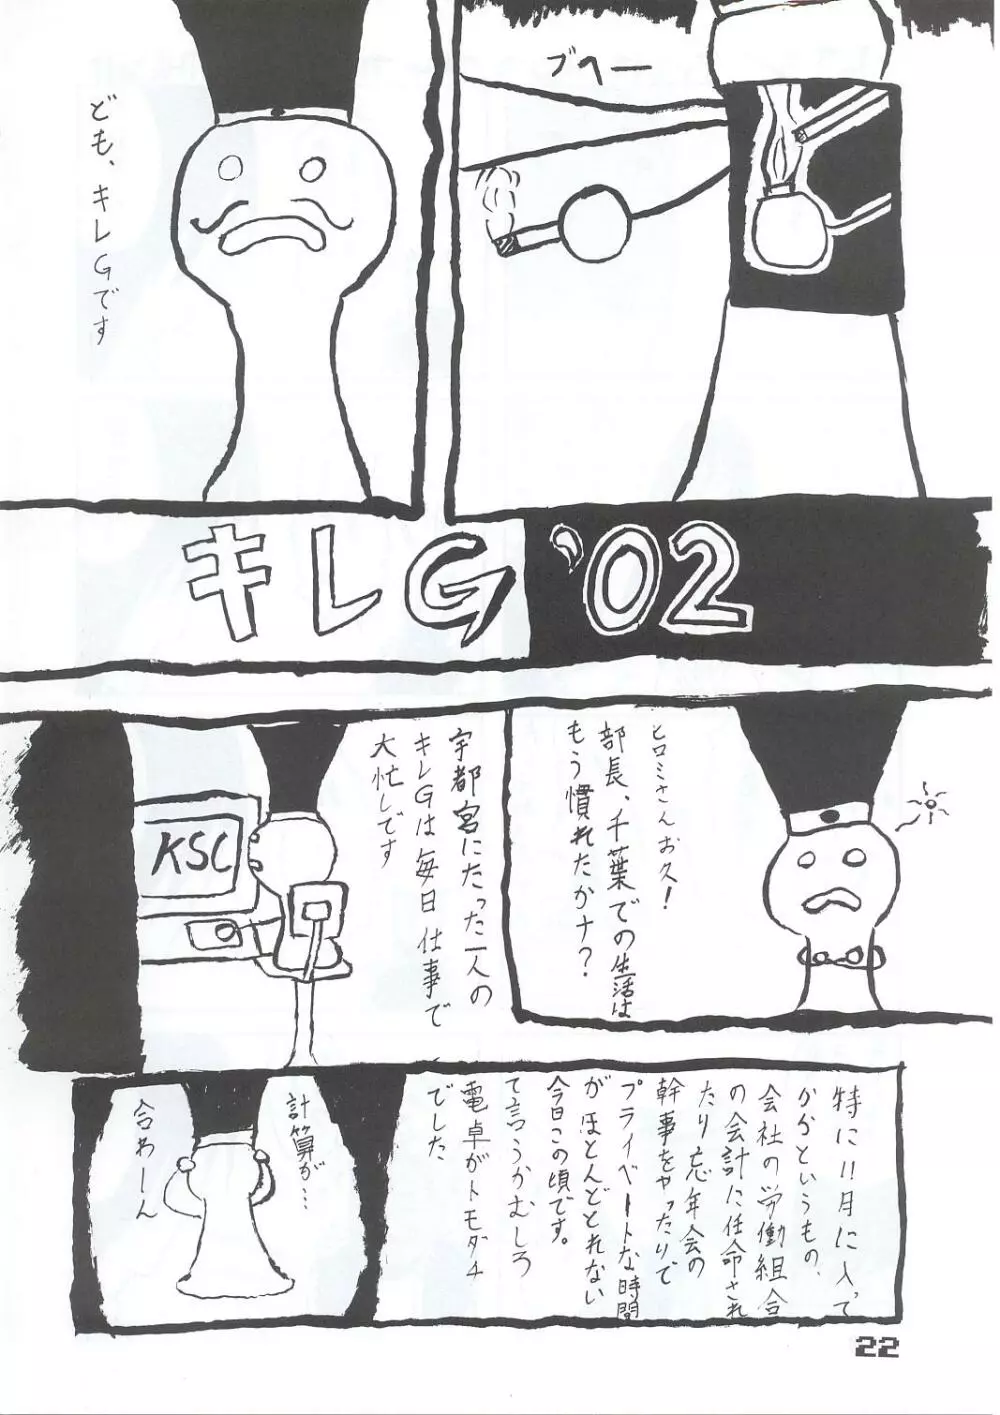 ブヘー
ども、キレGです
キレG '02
ヒロミさんお久!
部長、千葉での生活は
もう慣れたかナ?
宇都宮にたった一人の
キレGは毎日仕事で
大忙しです
KSC
特に11月に入って
からというもの、
会社の労働組合
の会計に任命され
たり忘年会の
幹事をやったりで
プライベートな時間
がほとんどとれない
今日この頃です。
て言うかむしろ
電卓がトモダチ
でした
計算が…
合わーん
22